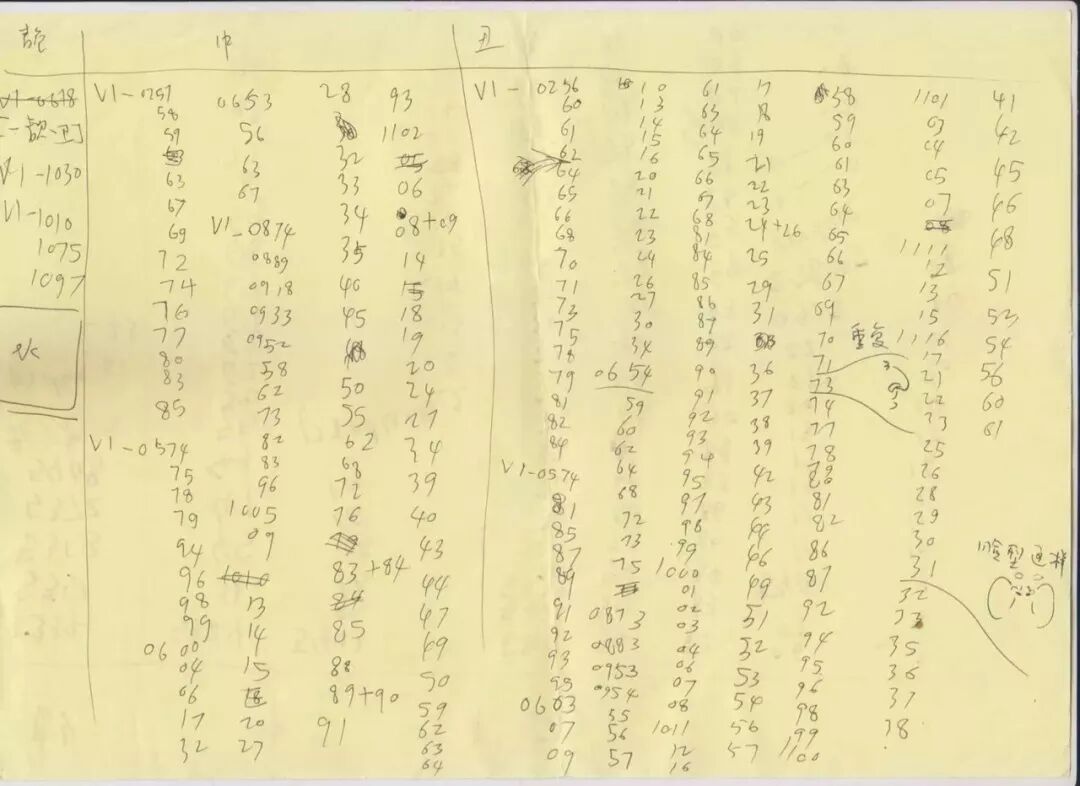 丑
V1-1030
V1-1010
1075
1097
水
V1-0257
58
59
63
67
69
72
74
76
77
80
83
85
V1-0574
75
78
79
94
96
98
99
0600
04
06
17
32
0653
56
63
67
V1-0874
0889
0918
0933
0952
58
62
73
82
83
96
1005
09
1010
13
14
15
20
27
28
32
33
34
35
40
45
50
55
62
63
72
76
83+84
84
85
88
89+90
91
93
1102
05
06
08+09
14
15
18
19
20
24
27
34
39
40
43
44
47
49
50
59
62
63
64
V1-0256
60
61
62
64
65
66
68
70
71
73
75
78
79
81
82
84
V1-0574
81
85
87
89
91
92
93
95
0603
07
09
10
13
14
15
16
20
21
22
23
24
26
27
30
34
0654
59
60
62
64
68
72
73
75
0873
0883
0953
0954
55
56
57
61
63
64
65
66
67
68
81
84
85
86
87
89
90
91
92
93
94
95
97
98
99
1000
01
02
03
04
06
07
08
1011
12
16
17
18
19
21
22
23
24+26
25
29
31
36
37
38
39
42
43
44
46
49
51
52
53
54
56
57
58
59
60
61
63
64
65
66
67
69
70
71
73
74
77
78
79
80
81
82
86
87
92
94
95
96
98
99
1100
1101
03
04
05
07
08
1111
12
13
15
重复
1116
17
21
22
23
25
26
28
29
30
31
32
33
35
36
37
38
41
42
45
46
48
51
52
54
56
60
61